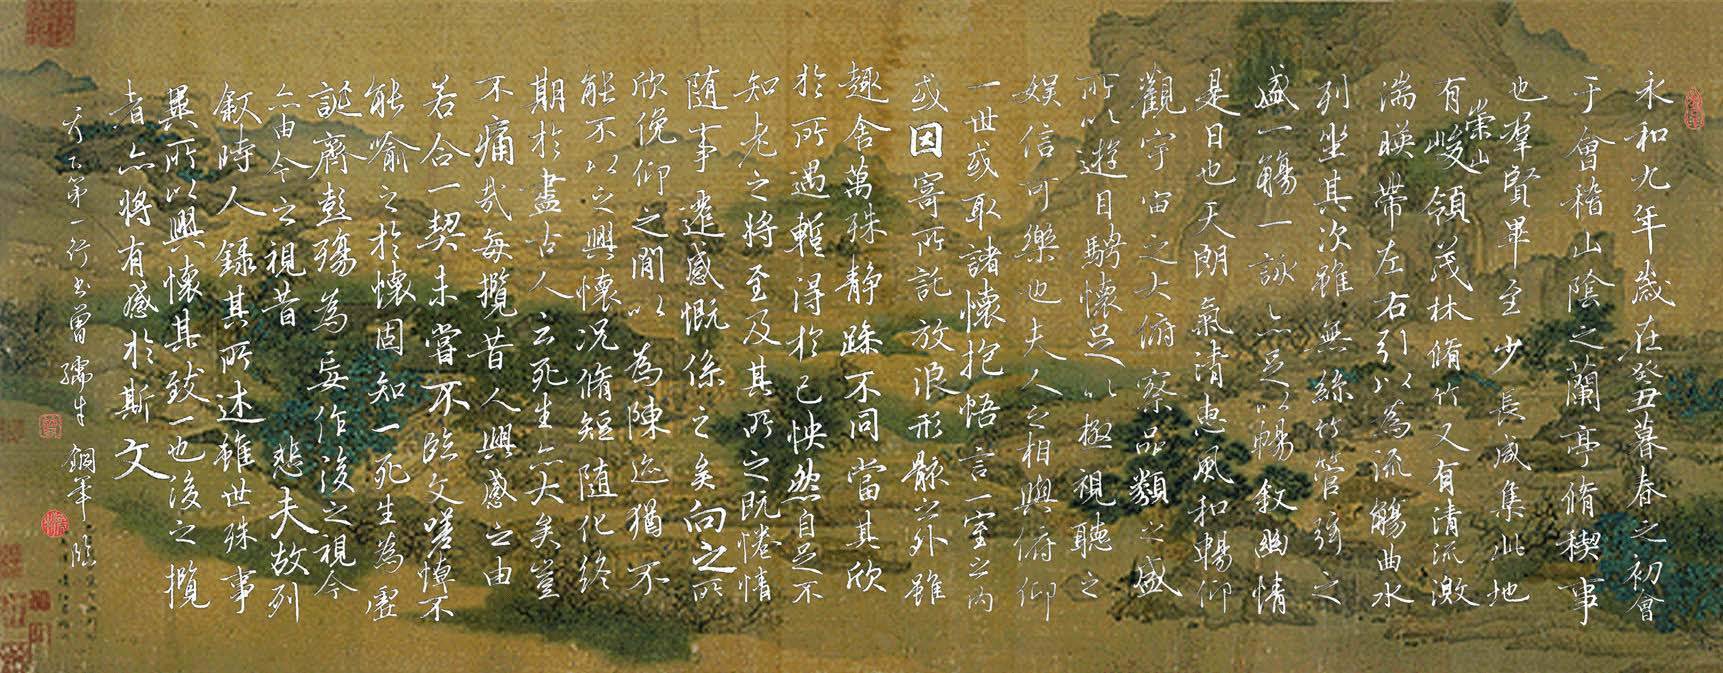 永和九年歲在癸丑暮春之初會
于會稽山陰之蘭亭脩稧事
也羣賢畢至少長咸集此地
有崇山峻領茂林脩竹又有清流激
湍暎帶左右引以為流觴曲水
列坐其次雖無絲竹管弦之
盛一觴一詠亦足以暢敘幽情
是日也天朗氣清惠風和暢仰
觀宇宙之大俯察品類之盛
所以遊目騁懷足以極視聽之
娛信可樂也夫人之相與俯仰
一世或取諸懷抱悟言一室之內
或因寄所託放浪形骸之外雖
趣舍萬殊靜躁不同當其欣
於所遇暫得於己怏然自足不
知老之將至及其所之既惓情
隨事遷感慨係之矣向之所
欣俛仰之閒以為陳迹猶不
能不以之興懷況脩短隨化終
期於盡古人云死生亦大矣豈
不痛哉每攬昔人興感之由
若合一契未嘗不臨文嗟悼不
能喻之於懷固知一死生為虛
誕齊彭殤為妄作後之視今
亦由今之視昔悲夫故列
敘時人錄其所述雖世殊事
異所以興懷其致一也後之攬
者亦將有感於斯文
天下第一行書曾孺牛鋼筆臨